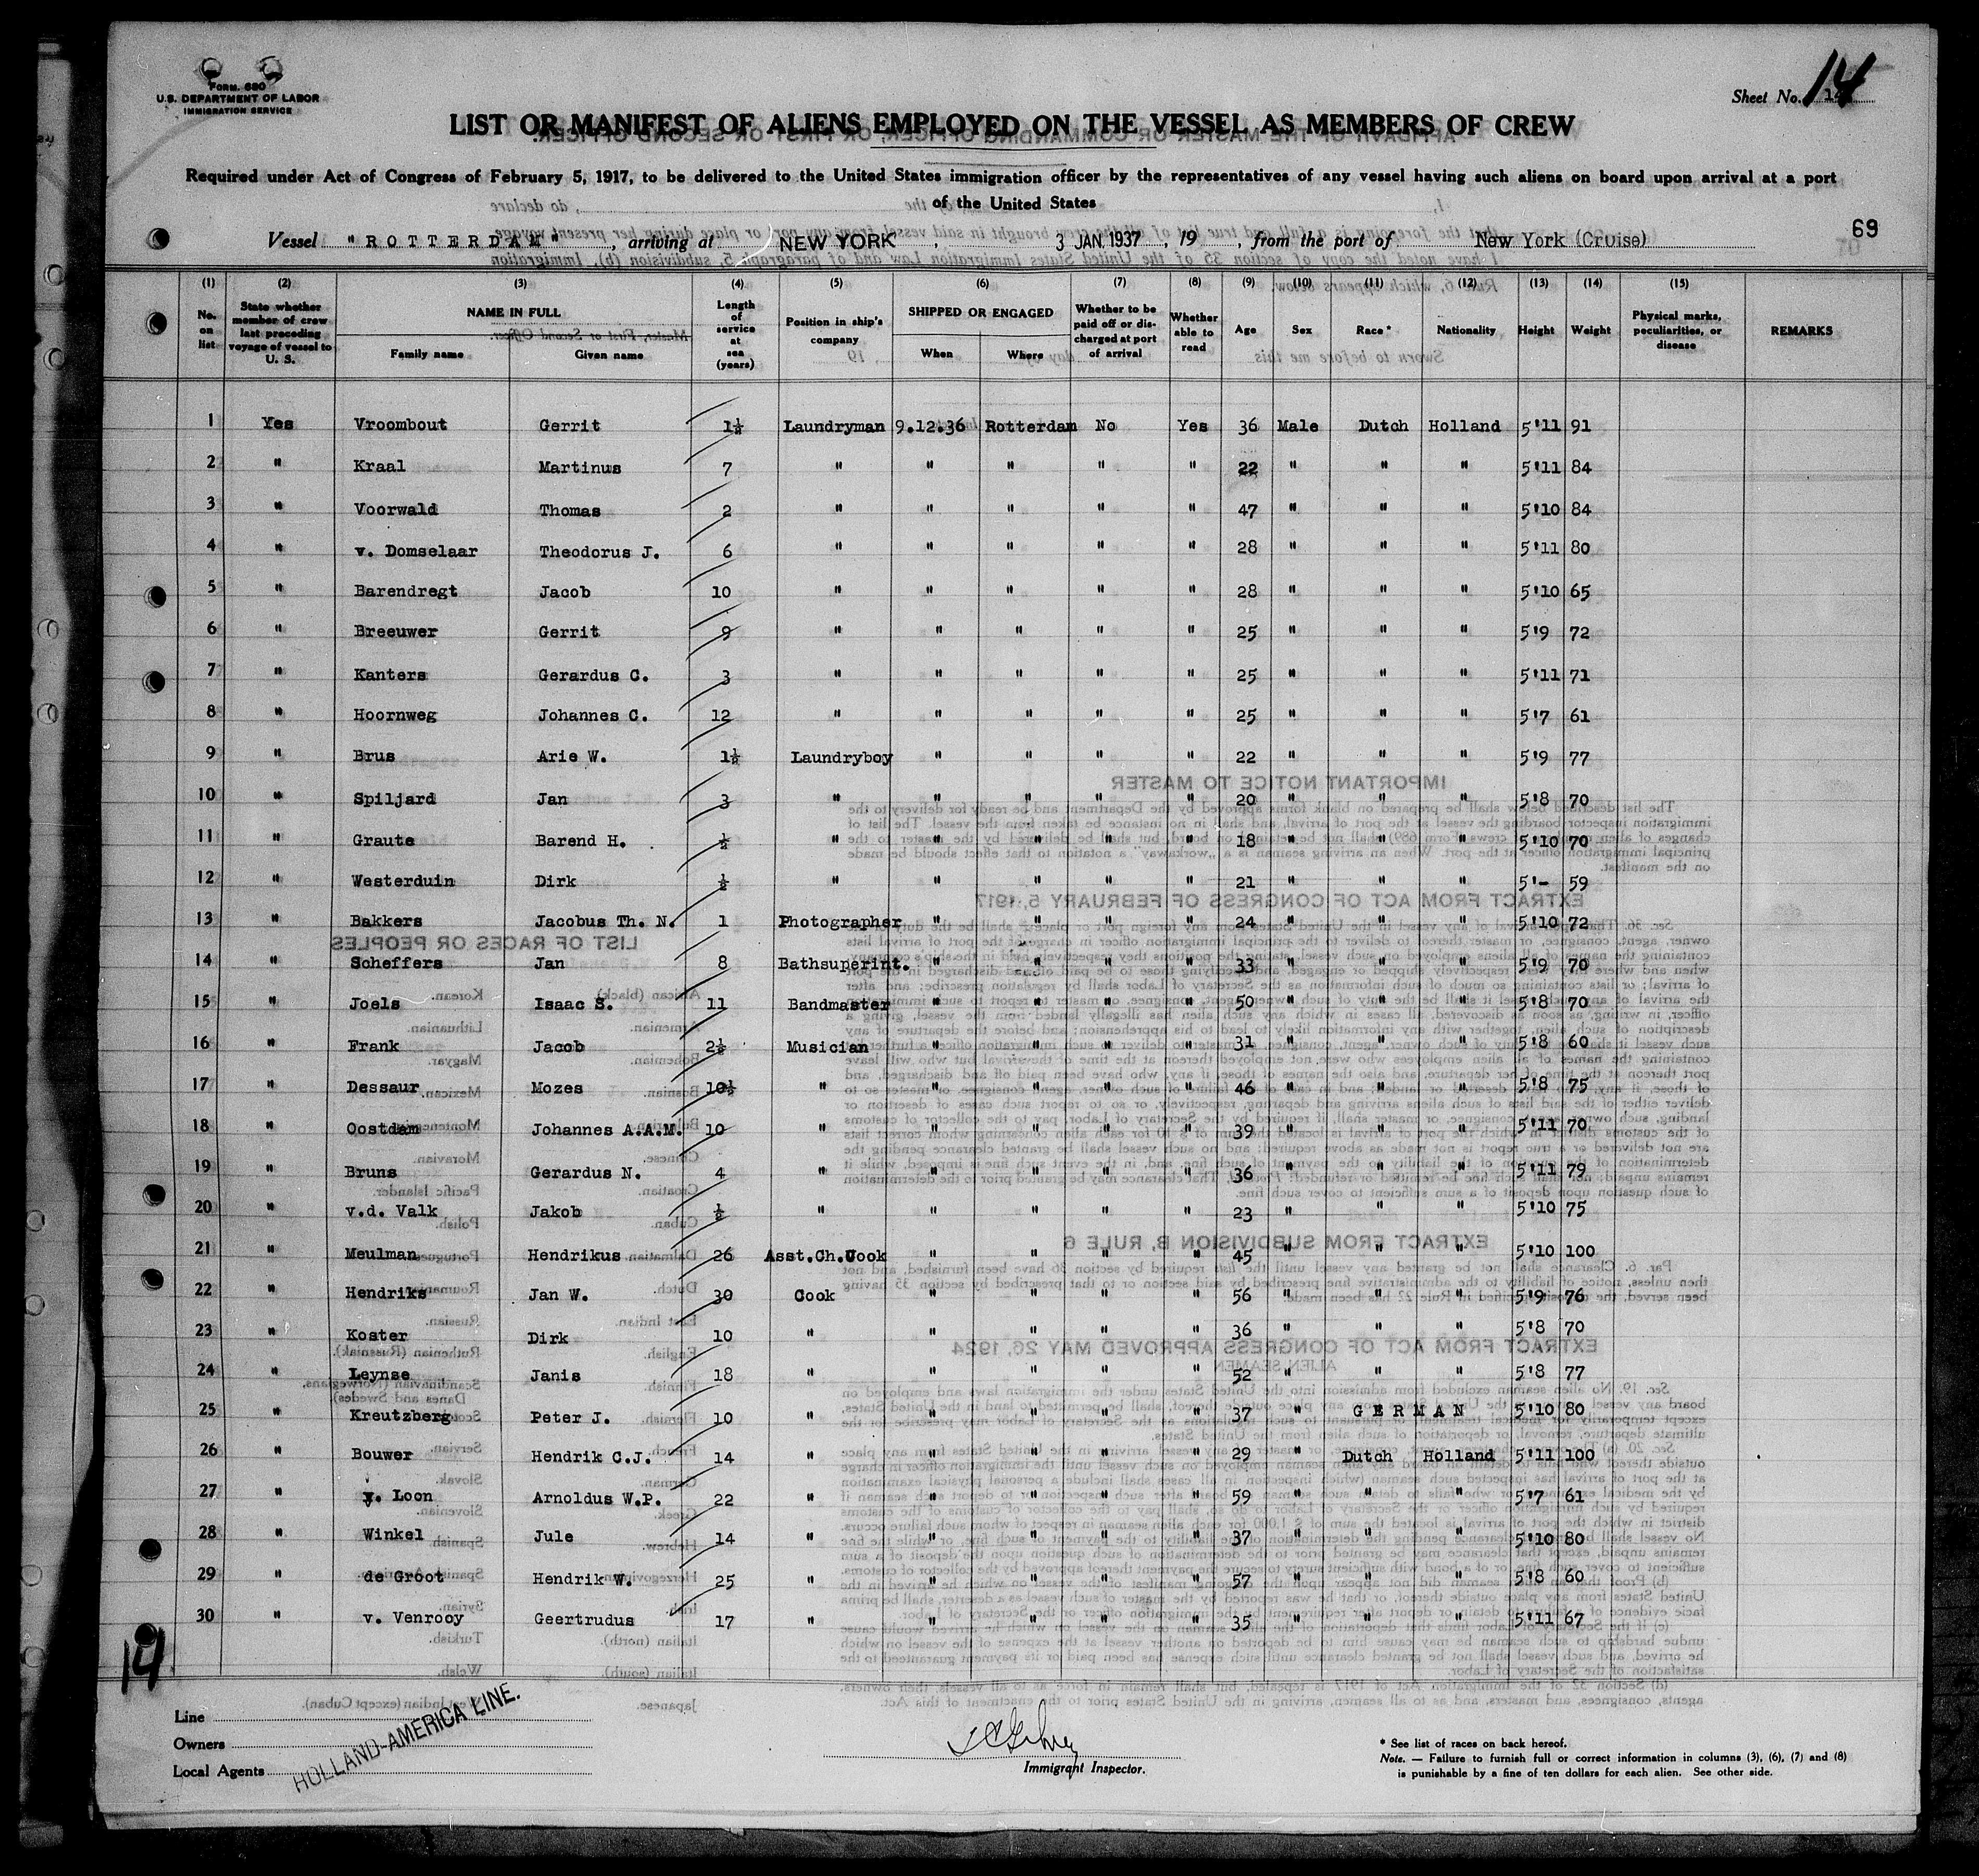 Form. 680
U.S. DEPARTMENT OF LABOR
IMMIGRATION SERVICE
Sheet No. 14
LIST OR MANIFEST OF ALIENS EMPLOYED ON THE VESSEL AS MEMBERS OF CREW
Required under Act of Congress of February 5, 1917, to be delivered to the United States immigration officer by the representatives of any vessel having such aliens on board upon arrival at a port
of the United States
Vessel "ROTTERDAM", arriving at NEW YORK, 3 JAN. 1937, 19 , from the port of New York (Cruise)
69
70
(1) (2) (3) (4) (5) (6) (7) (8) (9) (10) (11) (12) (13) (14) (15)
No. on list State whether member of crew last preceding voyage of vessel to U. S. NAME IN FULL Family name Given name Length of service at sea (years) Position in ship's company SHIPPED OR ENGAGED When Where Whether to be paid off or discharged at port of arrival Whether able to read Age Sex Race* Nationality Height Weight Physical marks, peculiarities, or disease REMARKS
1 Yes Vroombout Gerrit 1½ Laundryman 9.12.36 Rotterdam No Yes 36 Male Dutch Holland 5'11 91
2 " Kraal Martinus 7 " " " " " 22 " " " 5'11 84
3 " Voorwald Thomas 2 " " " " " 47 " " " 5'10 84
4 " v. Domselaar Theodorus J. 6 " " " " " 28 " " " 5'11 80
5 " Barendregt Jacob 10 " " " " " 28 " " " 5'10 65
6 " Breeuwer Gerrit 9 " " " " " 25 " " " 5'9 72
7 " Kanters Gerardus C. 3 " " " " " 25 " " " 5'11 71
8 " Hoornweg Johannes C. 12 " " " " " 25 " " " 5'7 61
9 " Brus Arie W. 1½ Laundryboy " " " " 22 " " " 5'9 77
10 " Spiljard Jan 3 " " " " " 20 " " " 5'8 70
11 " Graute Barend H. ½ " " " " " 18 " " " 5'10 70
12 " Westerduin Dirk ½ " " " " " 21 " " " 5'- 59
13 " Bakkers Jacobus Th. N. 1 Photographer " " " " 24 " " " 5'10 72
14 " Scheffers Jan 8 Bathsuperint. " " " " 33 " " " 5'9 70
15 " Joels Isaac S. 11 Bandmaster " " " " 50 " " " 5'8 70
16 " Frank Jacob 2½ Musician " " " " 31 " " " 5'8 60
17 " Dessaur Mozes 10½ " " " " " 46 " " " 5'8 75
18 " Oostdam Johannes A.A.M. 10 " " " " " 39 " " " 5'11 70
19 " Bruns Gerardus N. 4 " " " " " 36 " " " 5'11 79
20 " v.d. Valk Jakob ½ " " " " " 23 " " " 5'10 75
21 " Meulman Hendrikus 26 Asst.Ch.Cook " " " " 45 " " " 5'10 100
22 " Hendriks Jan W. 30 Cook " " " " 56 " " " 5'9 76
23 " Koster Dirk 10 " " " " " 36 " " " 5'8 70
24 " Leynse Janis 18 " " " " " 52 " " " 5'8 77
25 " Kreutzberg Peter J. 10 " " " " " 37 " GERMAN 5'10 80
26 " Bouwer Hendrik C.J. 14 " " " " " 29 " Dutch Holland 5'11 100
27 " v. Loon Arnoldus W.P. 22 " " " " " 59 " " " 5'7 61
28 " Winkel Jule 14 " " " " " 37 " " " 5'10 80
29 " de Groot Hendrik W. 25 " " " " " 57 " " " 5'8 60
30 " v. Venrooy Geertrudus 17 " " " " " 35 " " " 5'11 67
14
Line
Owners
Local Agents
HOLLAND-AMERICA LINE.
Immigrant Inspector.
* See list of races on back hereof.
Note. — Failure to furnish full or correct information in columns (3), (6), (7) and (8)
is punishable by a fine of ten dollars for each alien. See other side.